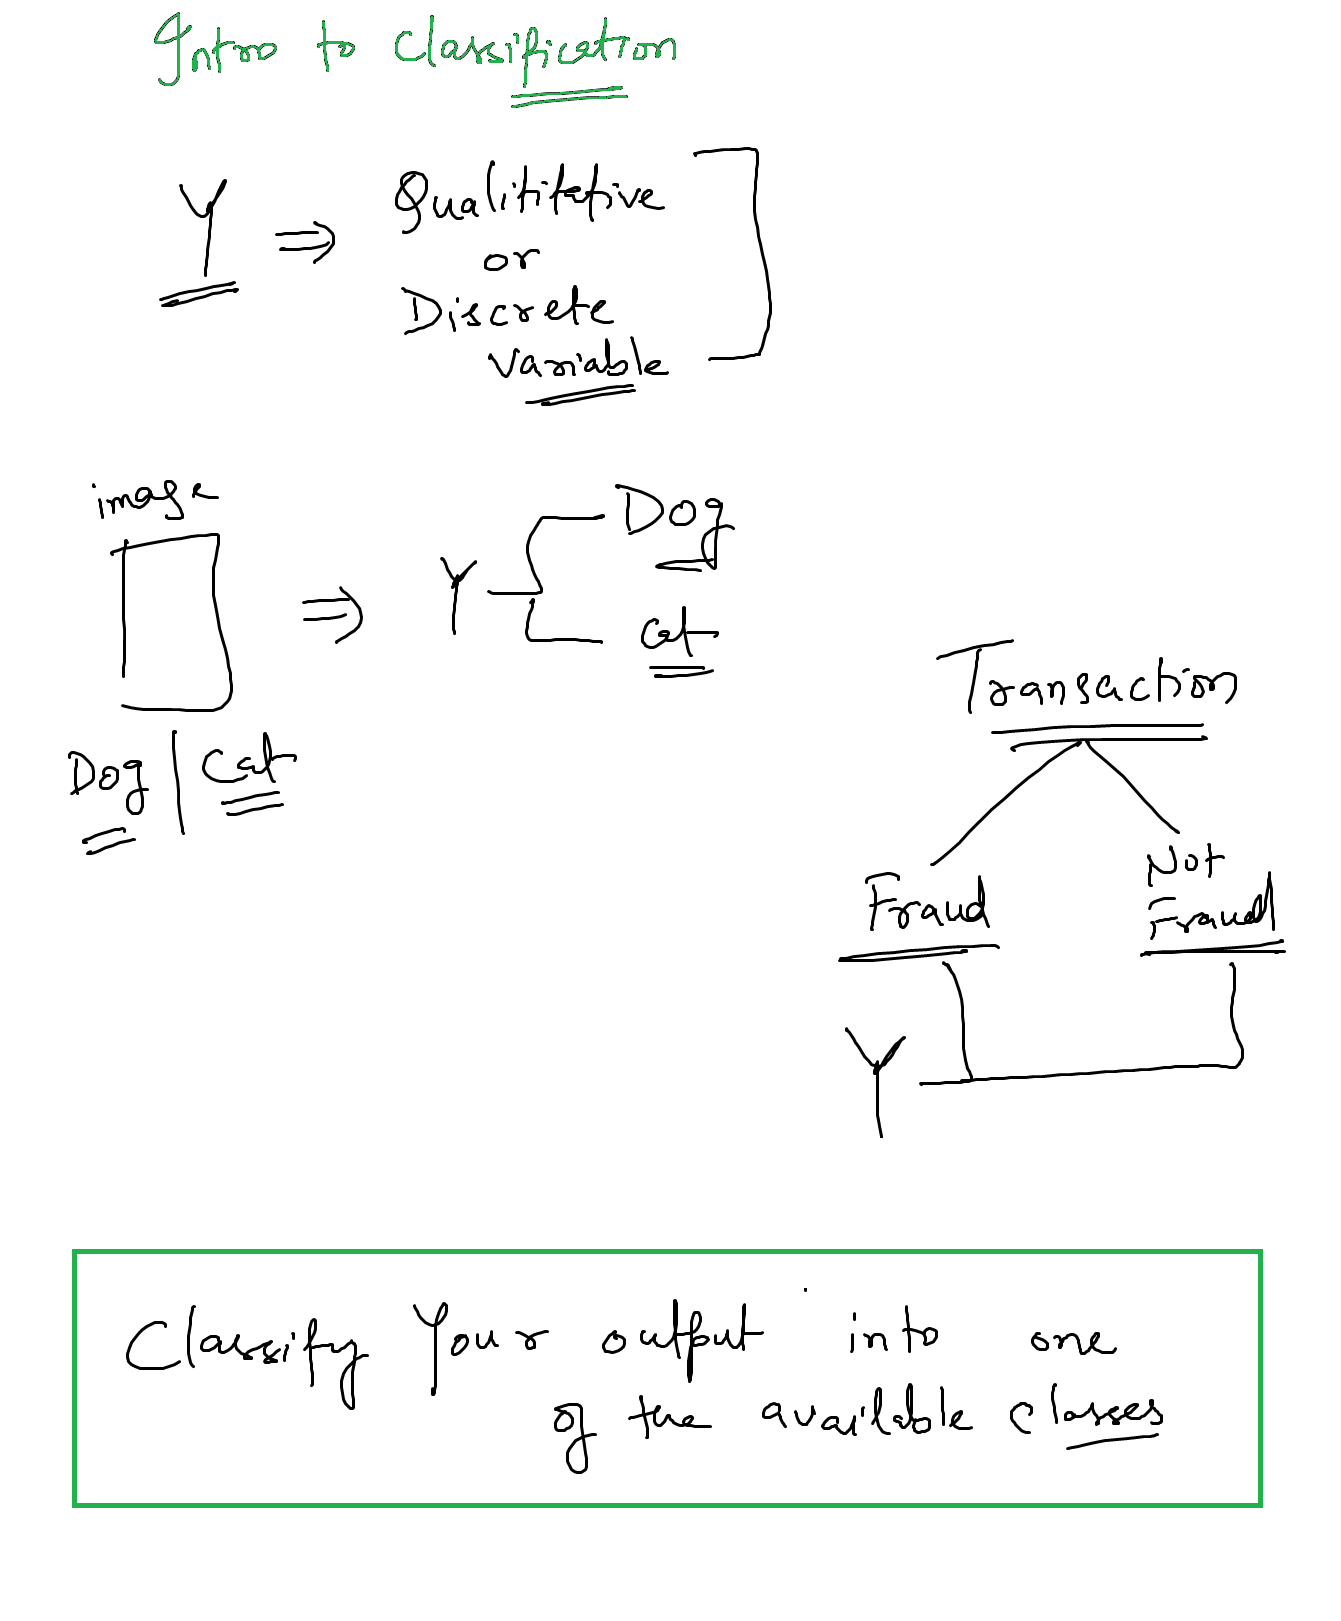 Intro to Classification
Y ⇒ Qualititative
or
Discrete
Variable
image
⇒ Y Dog
Cat
Dog | Cat
Transaction
Fraud Not
Fraud
Y
Classify Your output into one
of the available classes